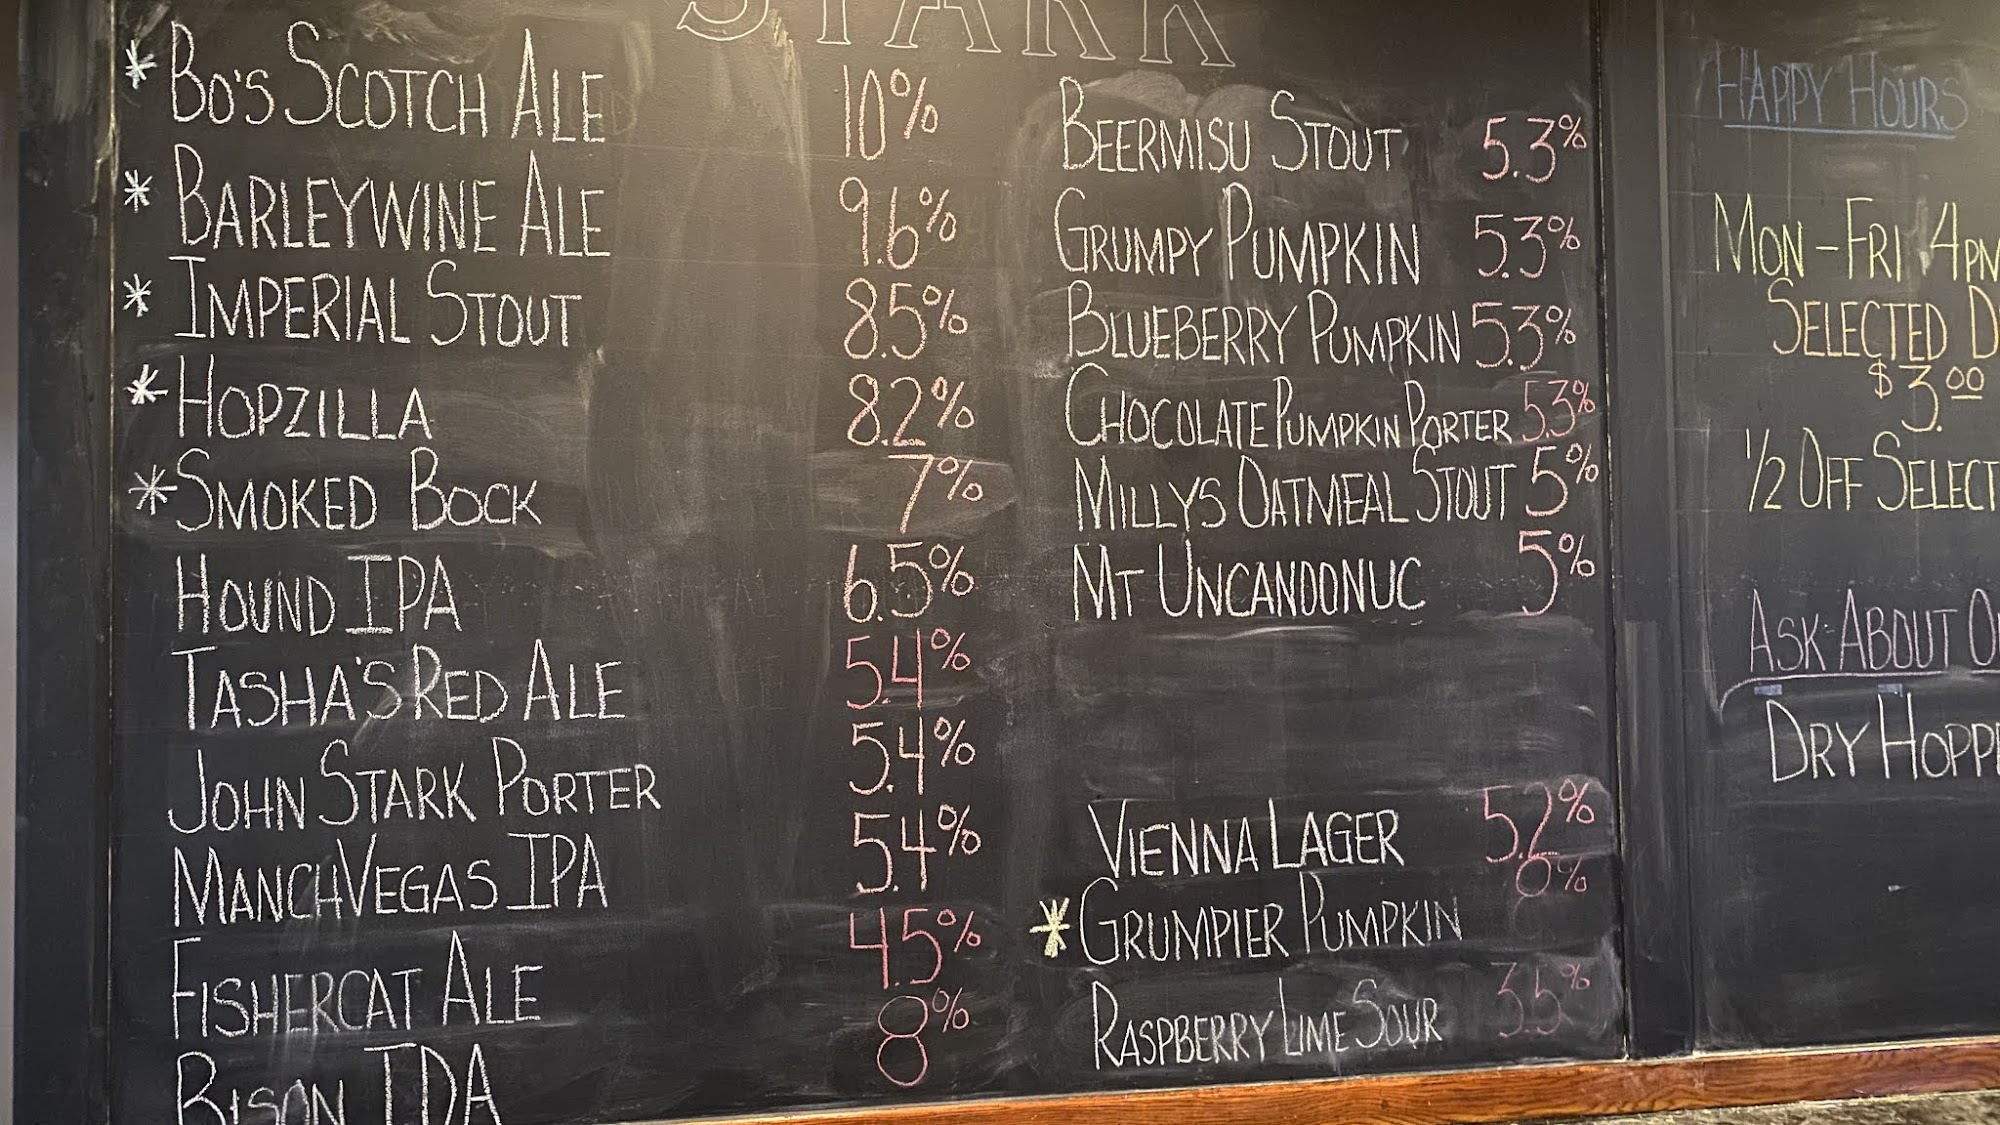 STARK
*Bo's Scotch Ale 10%
*Barleywine Ale 9.6%
*Imperial Stout 8.5%
*Hopzilla 8.2%
*Smoked Bock 7%
Hound IPA 6.5%
Tasha's Red Ale 5.4%
John Stark Porter 5.4%
ManchVegas IPA 5.4%
Fishercat Ale 4.5%
Bison 8%
Beermisu Stout 5.3%
Grumpy Pumpkin 5.3%
Blueberry Pumpkin 5.3%
Chocolate Pumpkin Porter 5.3%
Millys Oatmeal Stout 5%
Mt Uncandonuc 5%
Vienna Lager 5.2%
*Grumpier Pumpkin 8%
Raspberry Lime Sour 3.5%
Happy Hours
Mon-Fri 4pm
Selected
$3.00
1/2 Off
Ask About
Dry